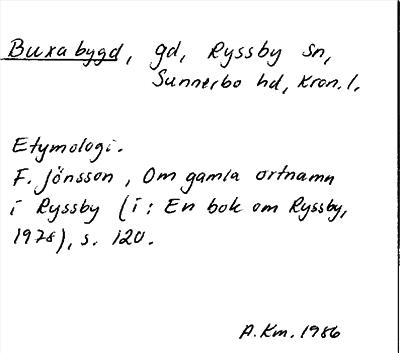 Buxabygd, gd, Ryssby sn,
Sunnerbo hd, Kron. l.
Etymologi.
F. Jönsson, Om gamla ortnamn
i Ryssby (i: En bok om Ryssby,
1978), s. 120.
A.Km. 1986